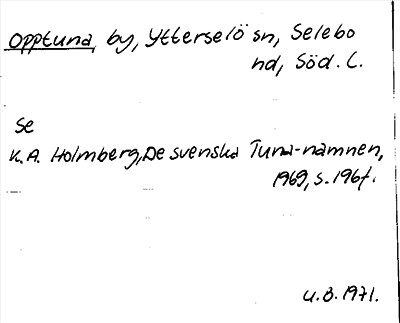 Opptuna, by, Ytterselö sn, Selebo
nd, Söd. L.
Se
K.A. Holmberg, De svenska Tuna-namnen,
1969, s. 196f.
U.B. 1971.